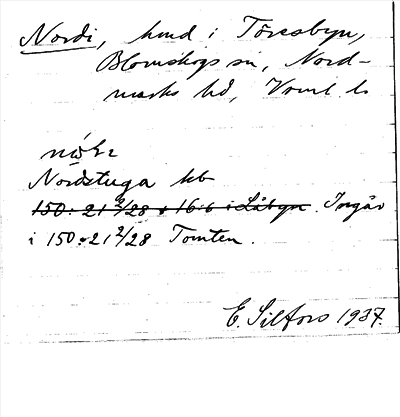 Nordi, hmd i Töresbyn,
Blomskogs sn, Nord-
marks hd, Vrml. l.
Nordstuga hb
150: 21 2/28 o 16:6 i Låbyn. Ingår
i 150:21 2/28 Tomten.
E. Silfors 1937.